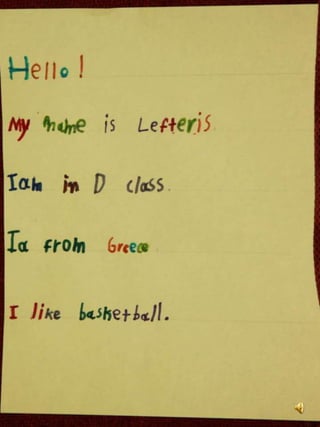 Hello!
My name is Lefteris
Iam in D class.
Ia from Greece
I like basketball.